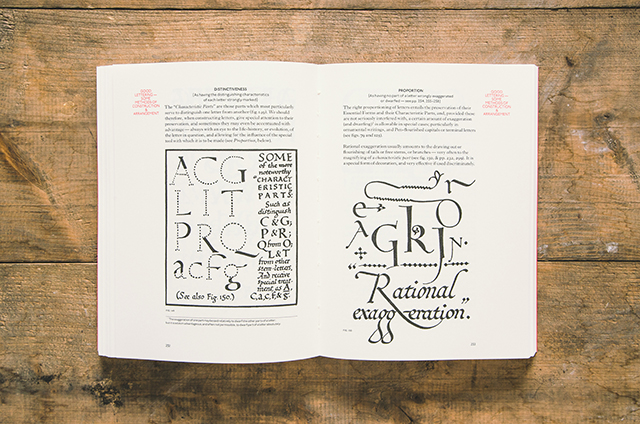 GOOD
LETTERING—
SOME
METHODS OF
CONSTRUCTION
&
ARRANGEMENT
DISTINCTIVENESS
(As having the distinguishing characteristics
of each letter strongly marked)
The "Characteristic Parts" are those parts which most particularly
serve to distinguish one letter from another (fig. 159). We should
therefore, when constructing letters, give special attention to their
preservation, and sometimes they may even be accentuated with
advantage—always with an eye to the history, or evolution, of
the letter in question, and allowing for the influence of the special
tool with which it is to be made (see Proportion, below).
ACG
LIT
PRQ
acfg
(See also Fig. 150.)
SOME
of the more
noteworthy
"CHARACT
ERISTIC
PARTS:
Such as
distinguish
C & G;
P & R;
Q from O;
L & T
from other
stem-letters,
And receive
special treat-
ment as A,
C, a, c, f, & g.
PROPORTION
(As having no part of a letter wrongly exaggerated
or dwarfed
The right proportioning of letters entails the preservation of their
Essential Forms and their Characteristic Parts, and, provided these
are not seriously interfered with, a certain amount of exaggeration
(and dwarfing) is allowable in special cases; particularly in
ornamental writings, and Pen-flourished capitals or terminal letters
(see figs. 79 and 125).
Rational exaggeration usually amounts to the drawing out or
flourishing of tails or free stems, or branches—very often to the
magnifying of a characteristic part
special form of decoration, and very effective if used discriminately.
GOOD
LETTERING—
SOME
METHODS OF
CONSTRUCTION
&
ARRANGEMENT
e r
A G k J O N.
"Rational
exaggeration."